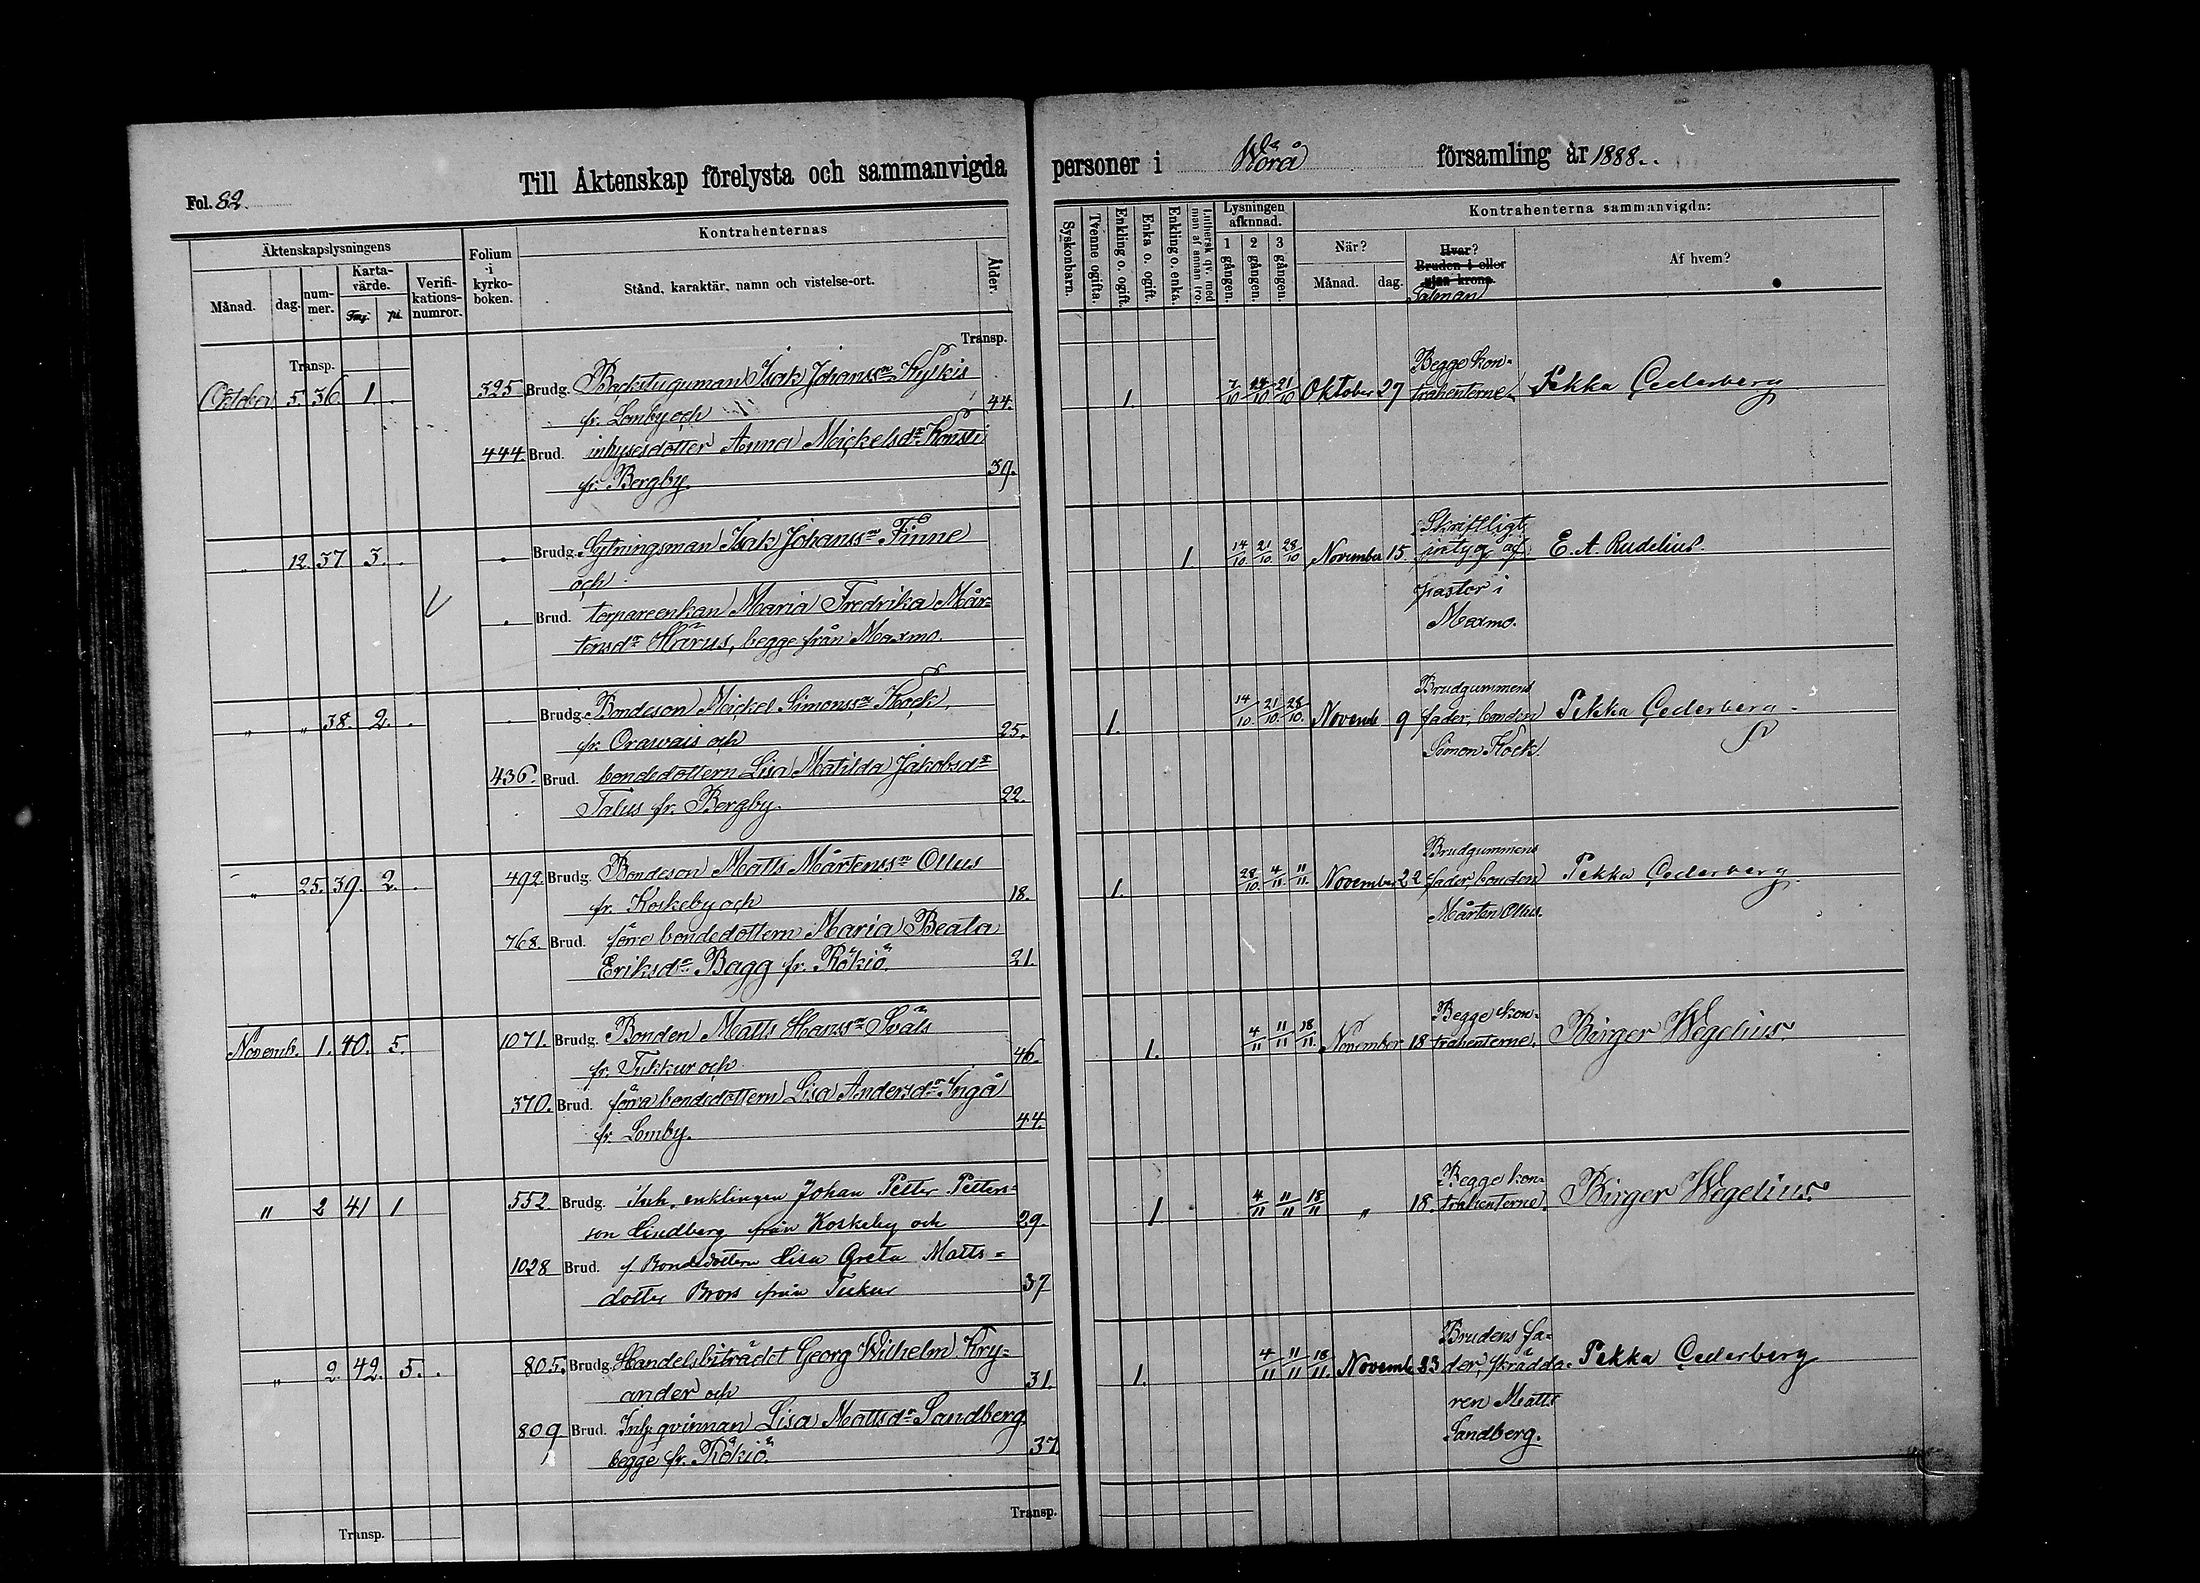 Fol. 82.
Till Äktenskap förelysta och sammanvigda personer i Wörå församling år 1888.
Äktenskapslysningens
Månad.
dag.
num-
mer.
Karta-
värde.
Fmg.
pi.
Verifi-
kations-
numror.
Folium
i
kyrko-
boken.
Kontrahenternas
Stånd, karaktär, namn och vistelse-ort.
Ålder.
Syskonbarn.
Tvenne ogifta.
Enkling o. ogift.
Enka o. ogift.
Enkling o. enka.
Luthersk qv. med
man af annan tro.
Lysningen
afkunnad.
1 gången.
2 gången.
3 gången.
Kontrahenterna sammanvigda:
När?
Månad.
dag.
Hvar?
Bruden i eller
utan krona.
Talman
Af hvem?
Transp.
Transp.
Oktober 5. 36. 1. 325 Brudg. Backstuguman Isak Johanss:n Kyskis
fr. Lomby och 44.
444. Brud. inhysesdotter Anna Mickelsd:r Konsti
fr. Bergby. 39.
1. 7/10 14/10 21/10 Oktober 27 Begge kon-
trahenterne. Pekka Cederberg
" 12. 37 3. Brudg. Sytningsman Isak Johanss:n Finne
och
Brud. torpareenkan Maria Fredrika Mår-
tensd:r Härus, begge från Maxmo.
1. 14/10 21/10 28/10 November 15. Skriftligt
intyg af
pastor i
Maxmo. E. A. Rudelius.
" " 38. 2. Brudg. Bondeson Mickel Simonss:n Kock,
fr. Orawais och 25.
436. Brud. bondedottern Lisa Matilda Jakobsd:r
Talus fr. Bergby. 22.
1. 14/10. 21/10. 28/10. Novemb 9 Brudgummens
fader, bonden
Simon Kock. Pekka Cederberg
" 25. 39. 2. 492 Brudg. Bondeson Matts Mårtenss:n Ollus
fr. Koskeby och 18.
768. Brud. förre bondedottern Maria Beata
Eriksd:r Bagg fr. Rökiö. 21.
1. 28/10. 4/11 11/11. November 22 Brudgummens
fader, bonden
Mårten Ollus. Pekka Cederberg.
Novemb. 1. 40. 5. 1071. Brudg. Bonden Matts Hanss:n Svals
fr. Tukkur och 46.
370. Brud. förra bondedottern Lisa Andersd:r Ingå
fr. Lomby. 44.
1. 4/11 11/11 18/11. November 18 Begge kon-
trahenterne. Birger Wegelius.
" 2 41 1 552. Brudg. Inh. enklingen Johan Petter Petters-
son Lindberg från Koskeby och 29.
1028 Brud. f. Bondedottern Lisa Greta Matts-
dotter Brors från Tukur 37
1. 4/11 11/11 18/11 " 18. Begge kon-
trahenterne. Birger Wegelius.
" 2. 42. 5. 805. Brudg. Handelsbiträdet Georg Wilhelm Kry-
ander och 31.
809 Brud. Inh. qvinnan Lisa Mattsd:r Sandberg
begge fr. Rökiö. 37.
1. 4/11 11/11 18/11. Novemb 23 Brudens fa-
der, skrädda-
ren Matts
Sandberg. Pekka Cederberg
Transp.
Transp.